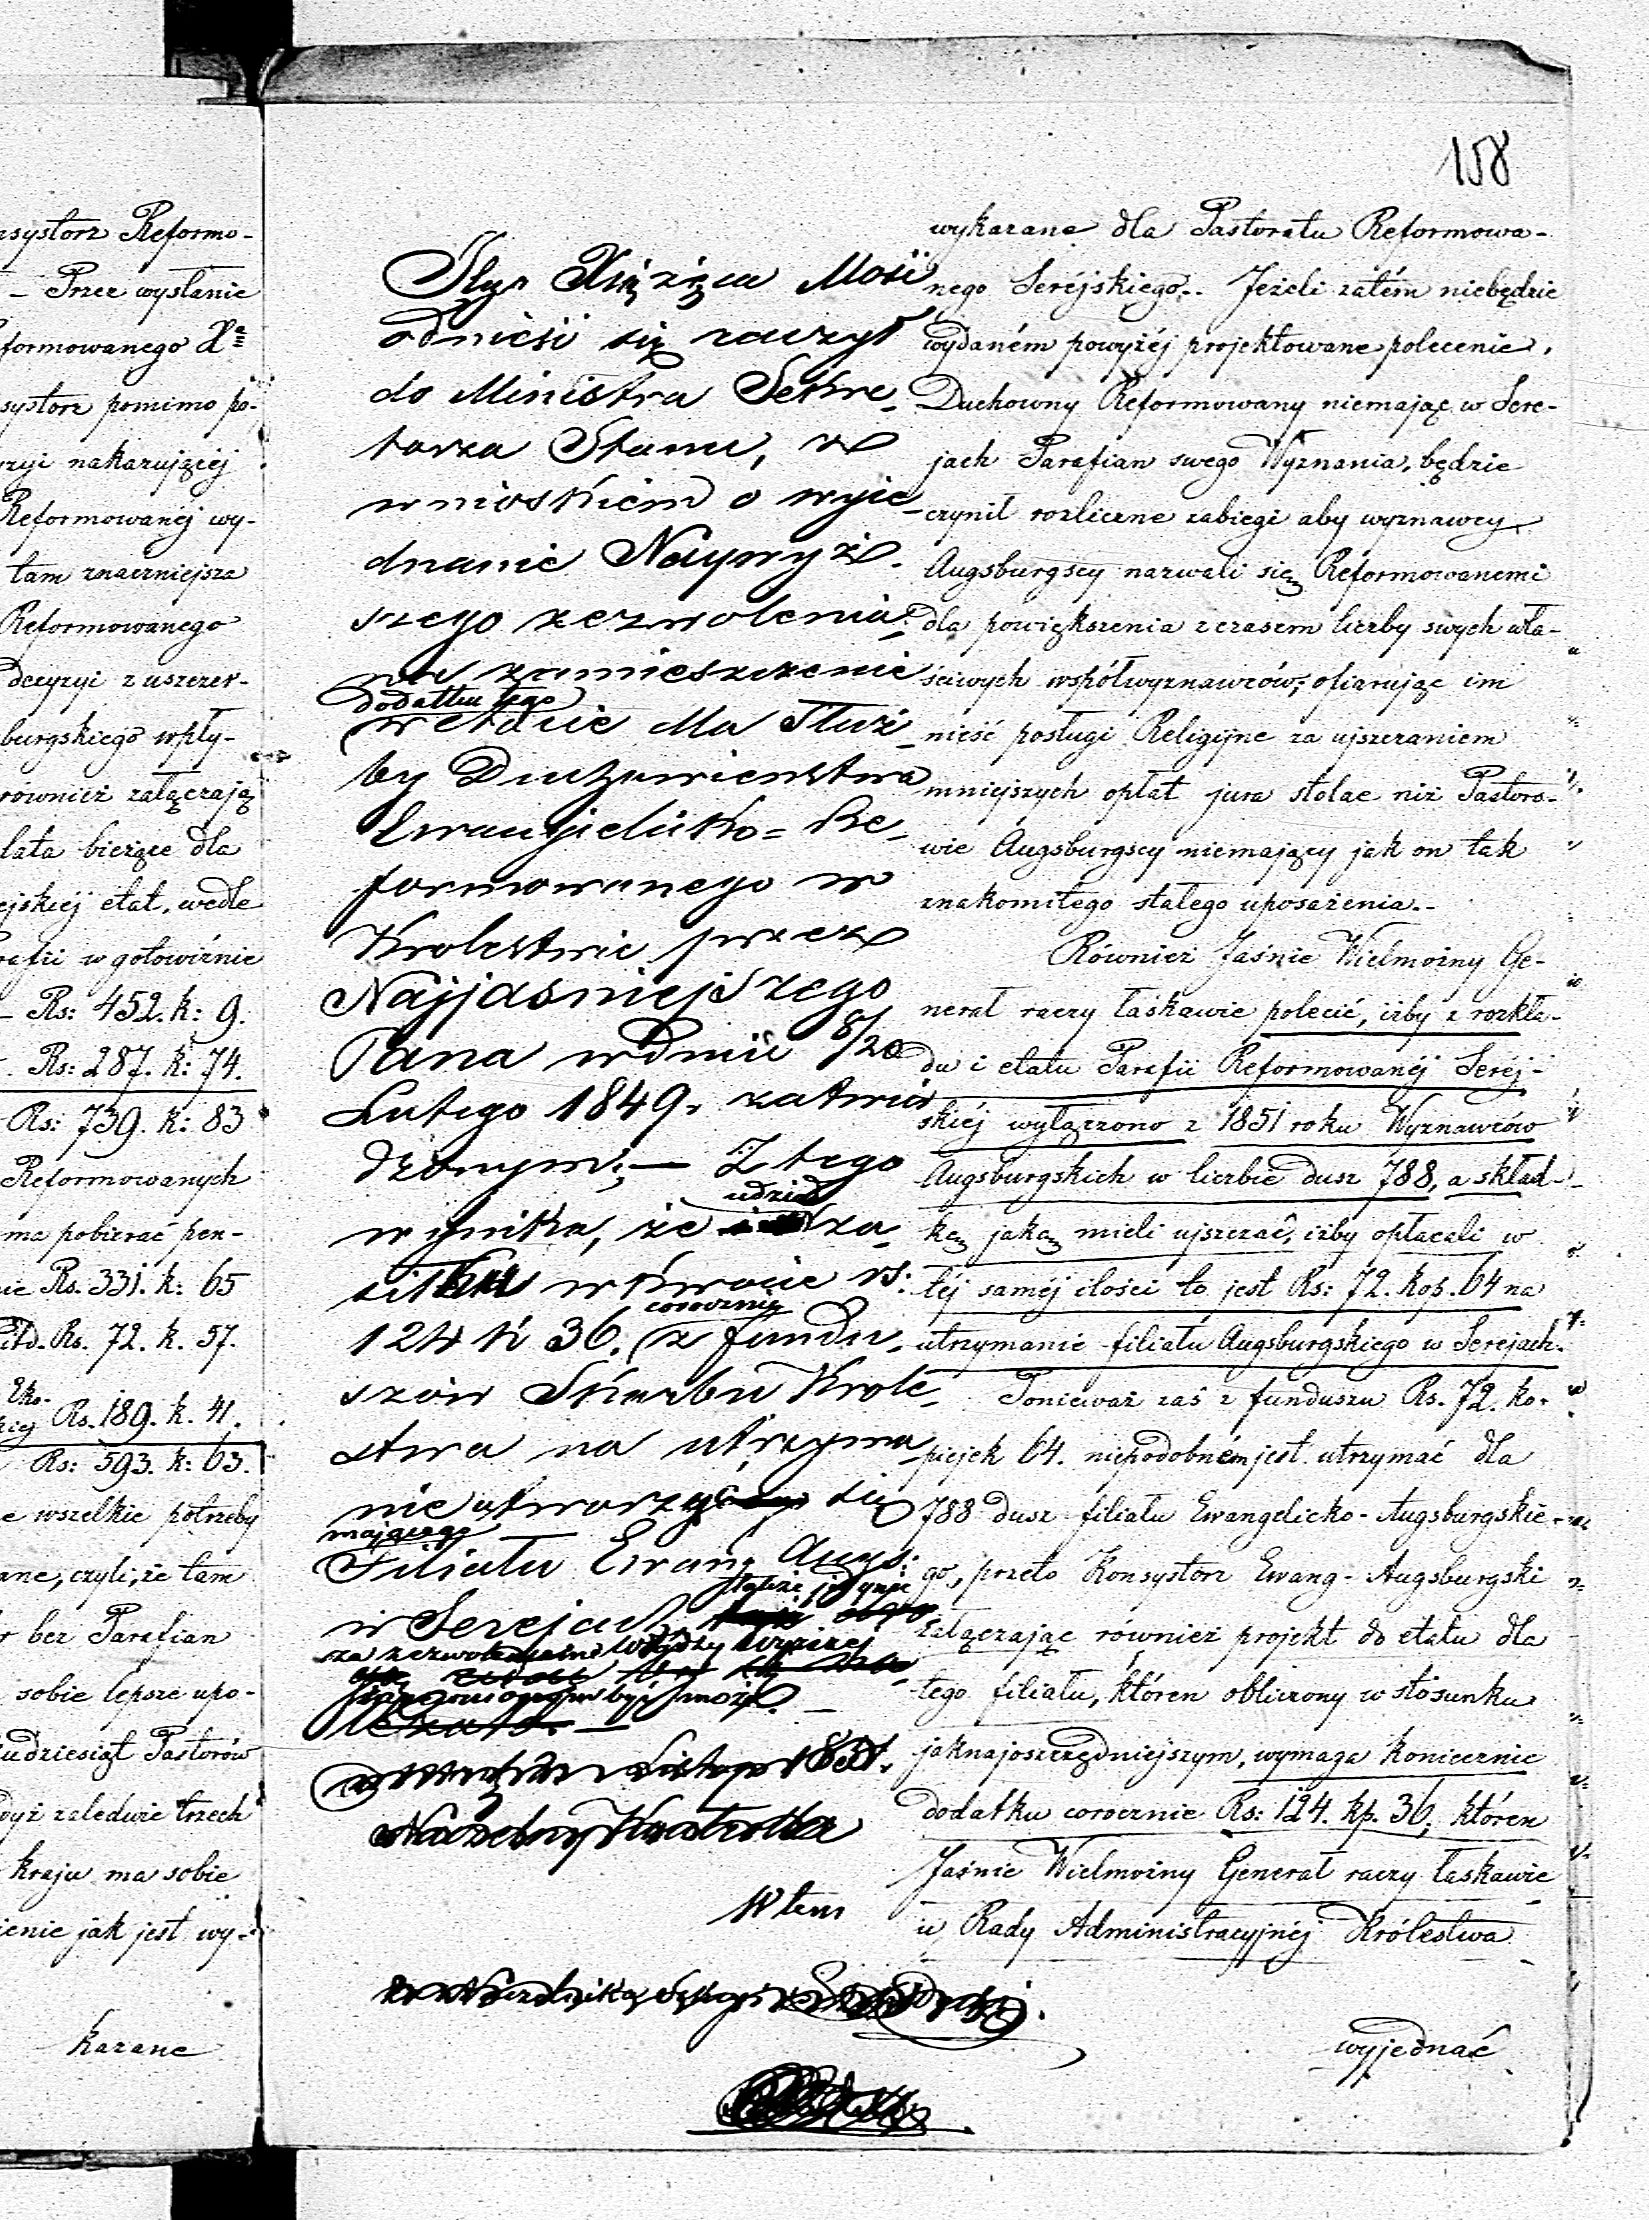 158
nsystorz Reformo-
- Przez wysłanie
formowanego X
systorz pomimo po-
zyi nakazującej
Reformowanej wy-
tam znaczniejsza
Reformowanego
Decyzyi z uszczer-
burgskiego wpły-
również załączają
lata bieżące dla
ejskiej etat, wedle
rafii w gotowiźnie
- Rs: 452. k: 9.
. Rs: 287. k: 74.
Rs: 739. k: 83
Reformowanych
ma pobierać pen-
ie Rs. 331. k: 65
itd. Rs. 72. k. 57.
Rs. 189. k. 41.
Rs: 593. k: 63.
e wszelkie potrzeby
ane, czyli, że tam
r bez Parafian
sobie lepsze upo-
udziesiąt Pastorów
dyż zaledwie trzech
kraju ma sobie
ienie jak jest wy-
kazane
Xiążęca Mość
odnieść się raczył
do Ministra Sekre-
tarza Stanu, z
wnioskiem o wyje-
dnanie Najwyż-
szego zezwolenia
na zamieszczenie
dodatku tego
w etacie dla Służ-
by Duchowieństwa
Ewangielicko-Re-
formowanego w
Krolestwie przez
Najjaśniejszego
Pana w dniu 8/20
Lutego 1849 r. zatwier
dzonym; — Z tego
udział
wynika, że za-
siłku w kwocie rs:
corocznie
124 k 36. z fundu-
szów Skarbu Króle-
stwa na utrzyma-
nie utworzyć się
mającego
Filiału Ewang Augs:
także jedynie
w Serejach
za zezwoleniem wyższej
być może. —
Wtem
wykazane dla Pastoratu Reformowa-
nego Serejskiego.- Jeżeli zatém niebędzie
wydaném powyżéj projektowane polecenie,
Duchowny Reformowany niemając w Sere-
jach Parafian swego Wyznania, będzie
czynił rozliczne zabiegi aby wyznawcy
Augsburgscy nazwali się Reformowanemi
dla powiększenia z czasem liczby swych wła-
ściwych współwyznawców; ofiarując im
nieść posługi Religijne za ujszczaniem
mniejszych opłat jura stolae niż Pastoro-
wie Augsburgscy niemający jak on tak
znakomitego stałego uposażenia.-
Również Jaśnie Wielmożny Ge-
nerał raczy łaskawie polecić, iżby z rozkła-
du i etatu Parafii Reformowanéj Seréj-
skiéj wyłączono z 1851 roku Wyznawców
Augsburgskich w liczbie dusz 788, a skład-
kę jaką mieli ujszczać, iżby opłacali w
téj saméj ilości to jest Rs: 72. kop. 64 na
utrzymanie filiału Augsburgskiego w Serejach.
Ponieważ zaś z funduszu Rs. 72. ko-
piejek 64. niepodobném jest utrzymać dla
788 dusz filiału Ewangelicko-Augsburgskie-
go, przeto Konsystorz Ewang-Augsburgski
załączając również projekt do etatu dla
tego filiału, któren obliczony w stosunku
jaknajoszczędniejszym, wymaga koniecznie
dodatku corocznie Rs: 124. kp. 36, któren
Jaśnie Wielmożny Generał raczy łaskawie
u Rady Administracyjnéj Królestwa
wyjednać